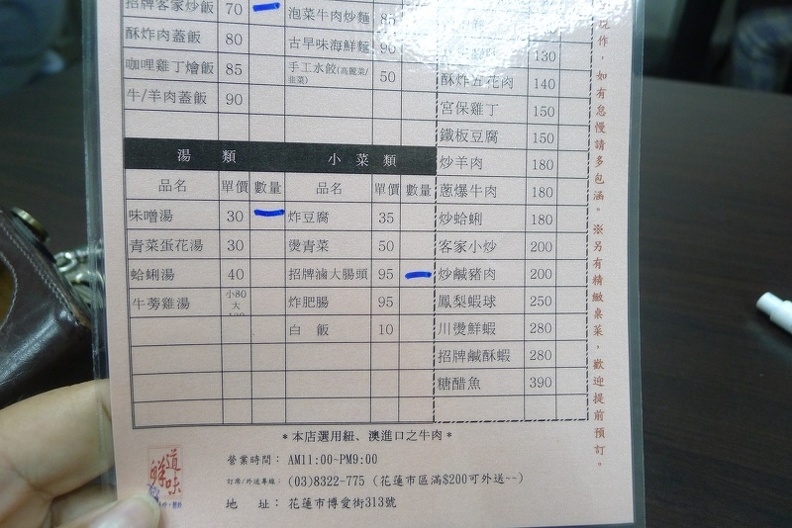 招牌客家炒飯 70
酥炸肉蓋飯 80
咖哩雞丁燴飯 85
牛/羊肉蓋飯 90
泡菜牛肉炒麵 85
古早味海鮮麵 90
手工水餃(高麗菜/韭菜) 50
130
酥炸五花肉 140
宮保雞丁 150
鐵板豆腐 150
炒羊肉 180
蔥爆牛肉 180
炒蛤蜊 180
客家小炒 200
炒鹹豬肉 200
鳳梨蝦球 250
川燙鮮蝦 280
招牌鹹酥蝦 280
糖醋魚 390
湯類
品名 單價 數量
味噌湯 30
青菜蛋花湯 30
蛤蜊湯 40
牛蒡雞湯 小80 大
小菜類
品名 單價 數量
炸豆腐 35
燙青菜 50
招牌滷大腸頭 95
炸肥腸 95
白飯 10
作，如有怠慢請多包涵。※另有精緻桌菜，歡迎提前預訂。
*本店選用紐、澳進口之牛肉*
營業時間： AM11:00~PM9:00
訂席/外送專線： (03)8322-775 (花蓮市區滿$200可外送~~)
地 址： 花蓮市博愛街313號
道味鮮